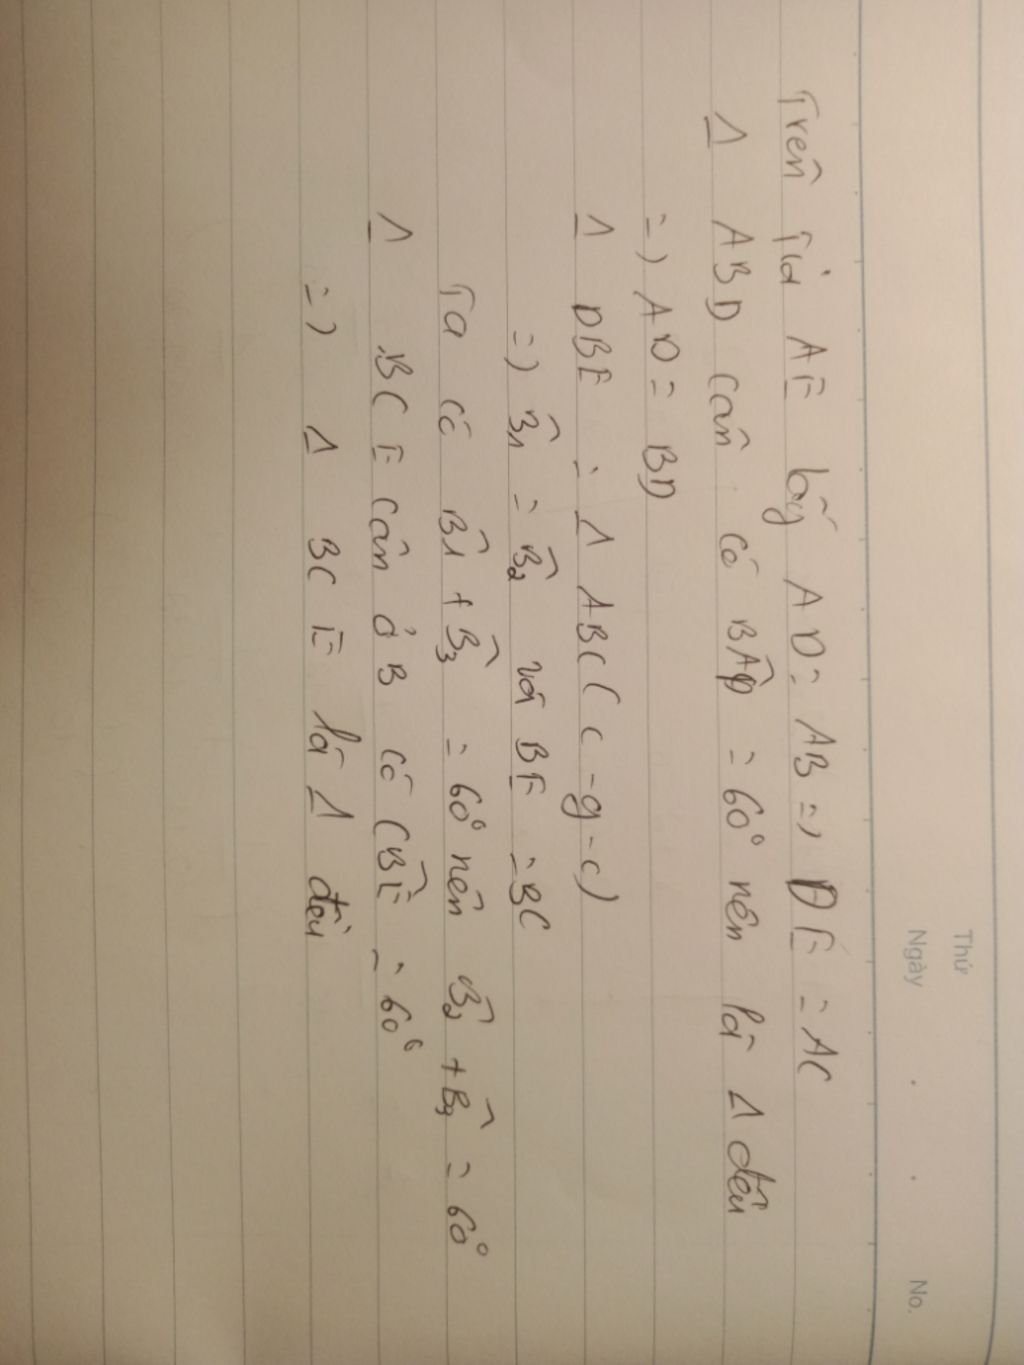 Thứ
Ngày . . No.
Trên tia AE lấy AD = AB => DE = AC
Δ ABD cân có BÂD = 60° nên là Δ đều
=> AD = BD
Δ DBE = Δ ABC (c-g-c)
=> B̂1 = B̂2 và BE = BC
Ta có B̂1 + B̂3 = 60° nên B̂2 + B̂3 = 60°
Δ BCE cân ở B có CB̂E = 60°
=> Δ BCE là Δ đều